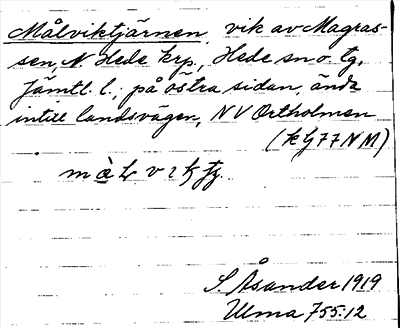 Målviktjärnen, vik av Magras-
sen, N Hede krp, Hede sn o. tg,
Jämtl. l.; på östra sidan, ända
intill landsvägen, NV Ortholmen
(k G77NM)
S. Åsander 1919
Ulma 755:12